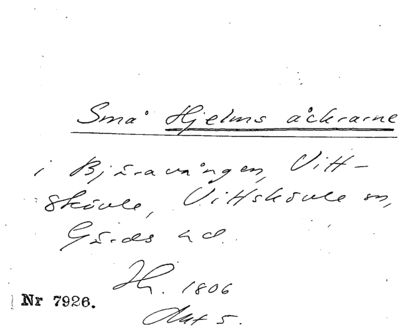 Små Hjelms åckrarne
i Bjäravången, Vitt-
skövle, Vittskövle sn,
Gärds hd.
Hs. 1806
Akt 5.
Nr 7926.